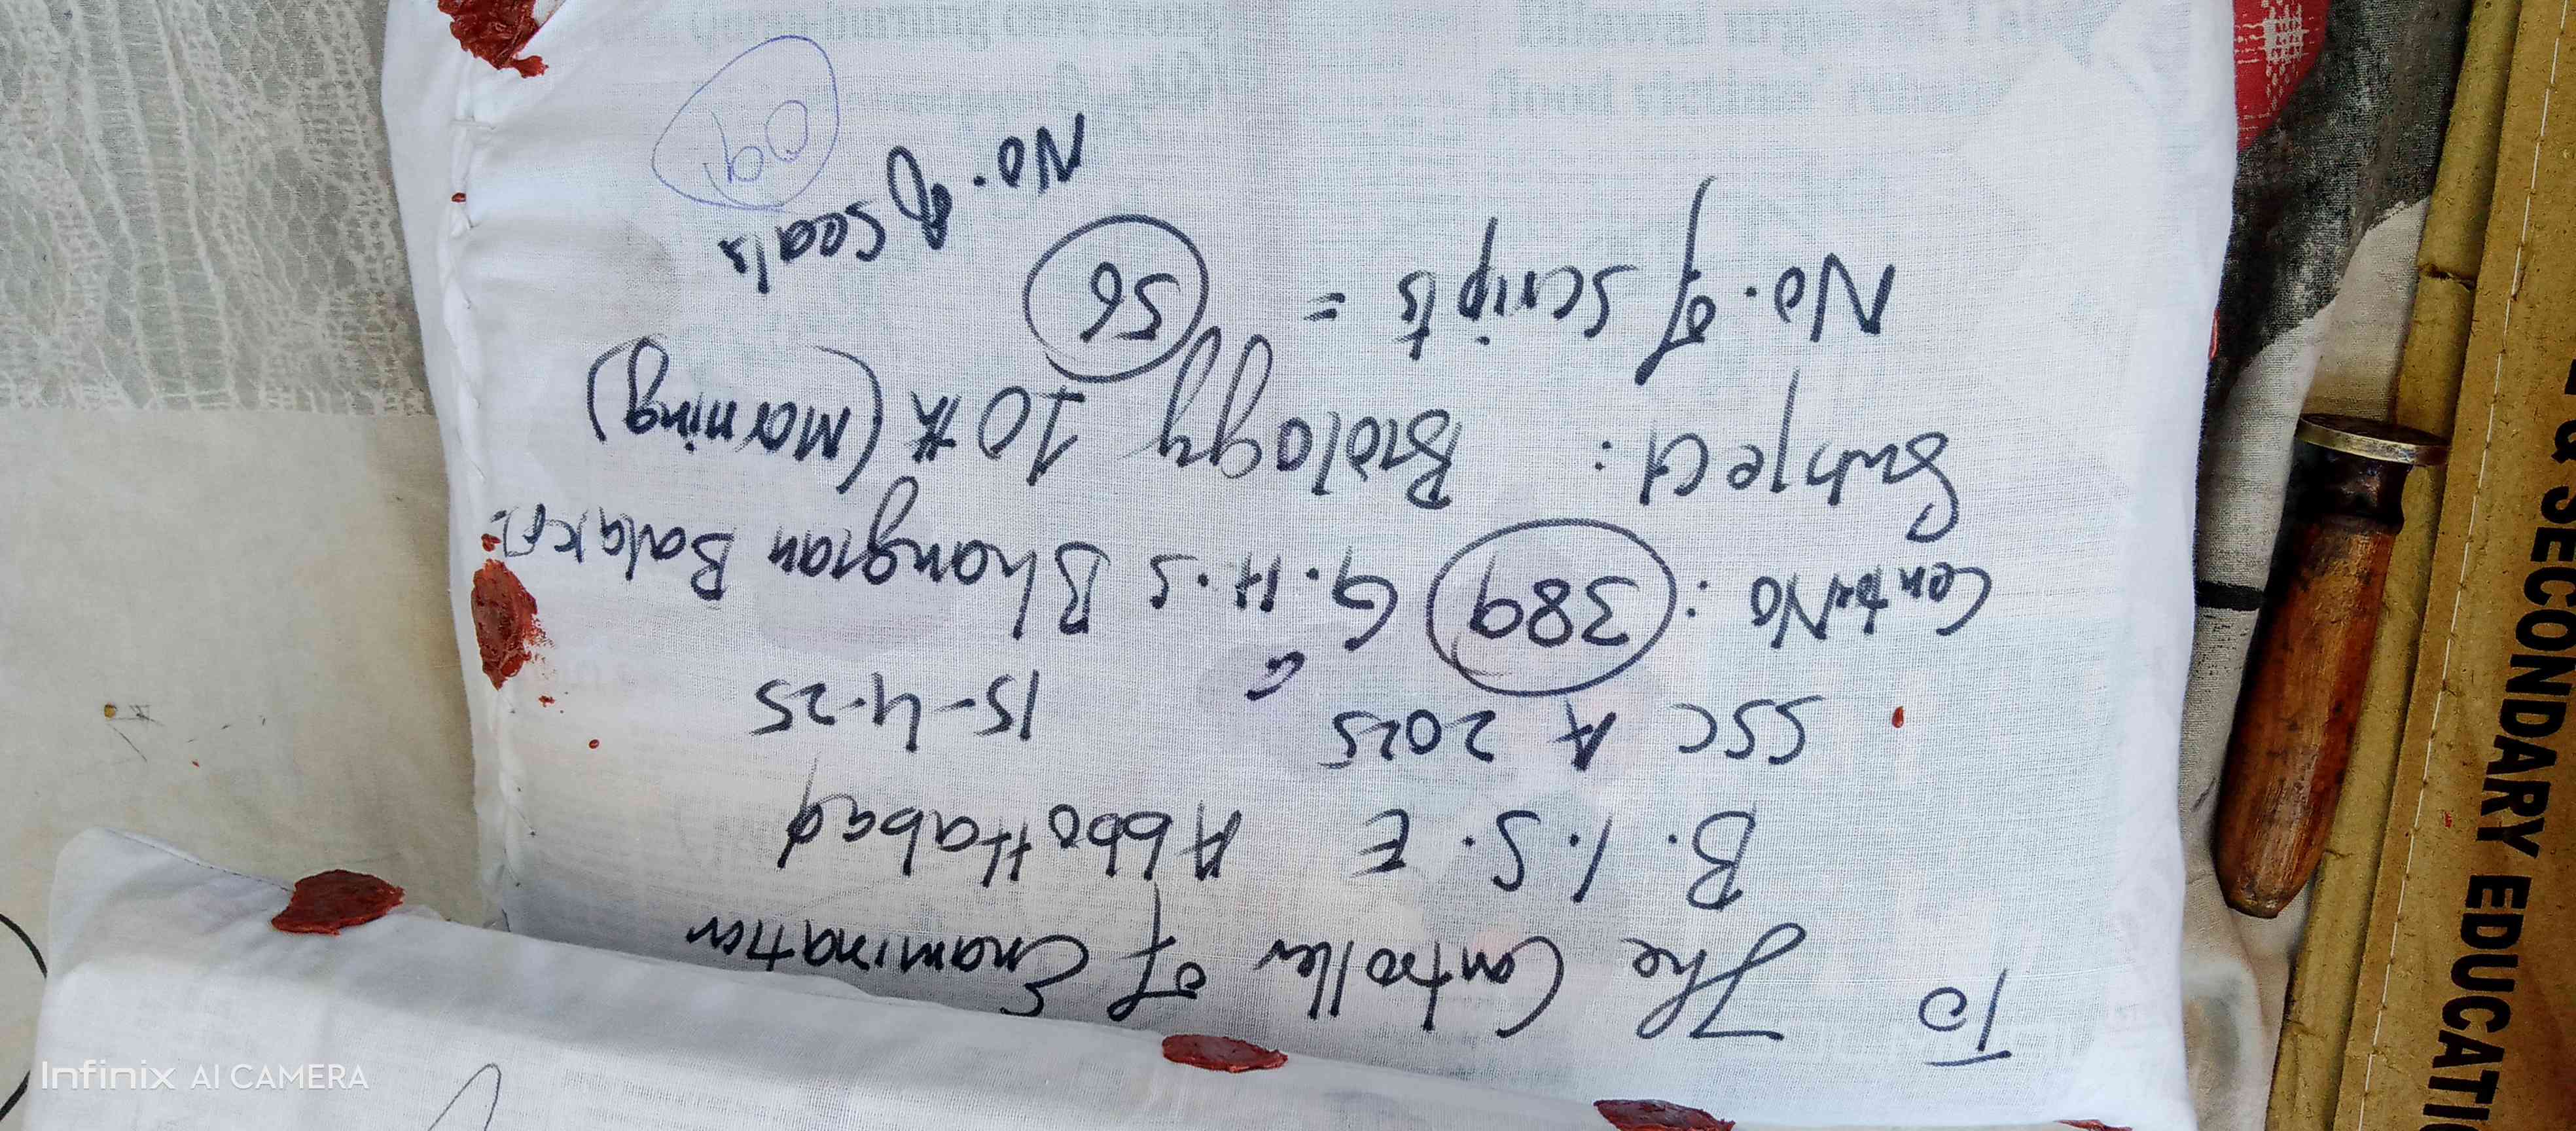 To
The Controller of Examination
B.I.S.E Abbottabad
SSC A 2025 15-4-25
Centre No: 389 G.H.S Bhangian Balakot
Subject: Biology 10th (Morning)
No. of Scripts = 56
No. of Seals 09
& SECONDARY EDUCATI
Infinix AI CAMERA